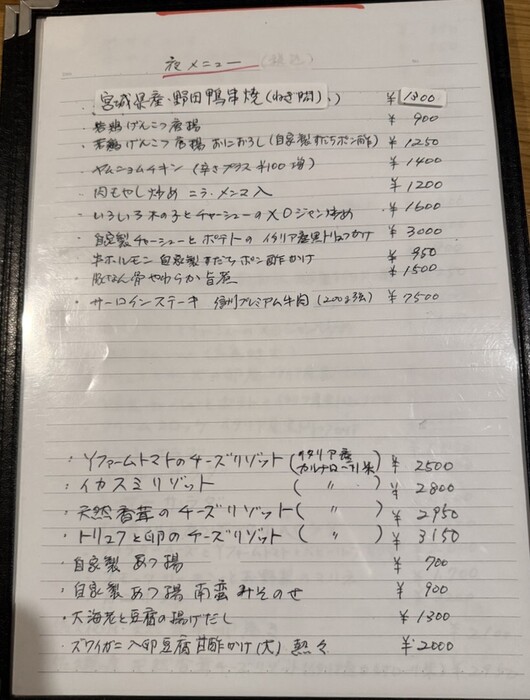 夜メニュー
・宮城県産・野田鴨串焼(ねぎ間) ¥1800
・若鶏げんこつ唐揚 ¥900
・若鶏げんこつ唐揚 おにおろし(自家製すだちポン酢) ¥1250
・ヤムニョムチキン (辛さプラス ¥100増) ¥1400
・肉もやし炒め こう、メンマ入 ¥1200
・いろいろ木の子とチャーシューのXOジャン炒め ¥1600
・自家製チャーシューとポテトの イタリア産黒トリュフかけ ¥3000
・牛ホルモン 自家製すだち ポン酢かけ ¥950
・豚なん骨やわらか旨煮 ¥1500
・サーロインステーキ 信州プレミアム牛肉 (200g強) ¥7500
・Yファームトマトのチーズリゾット(イタリア産カルナローリ米) ¥2500
・イカスミリゾット ( 〃 ) ¥2800
・天然香茸のチーズリゾット( 〃 ) ¥2950
・トリュフと卵のチーズリゾット ( 〃 ) ¥3150
・自家製 あつ揚 ¥700
・自家製 あつ揚 南蛮みそのせ ¥900
・大海老と豆腐の揚げだし ¥1300
・ズワイガニ入卵豆腐甘酢かけ(大) 熱々 ¥2000